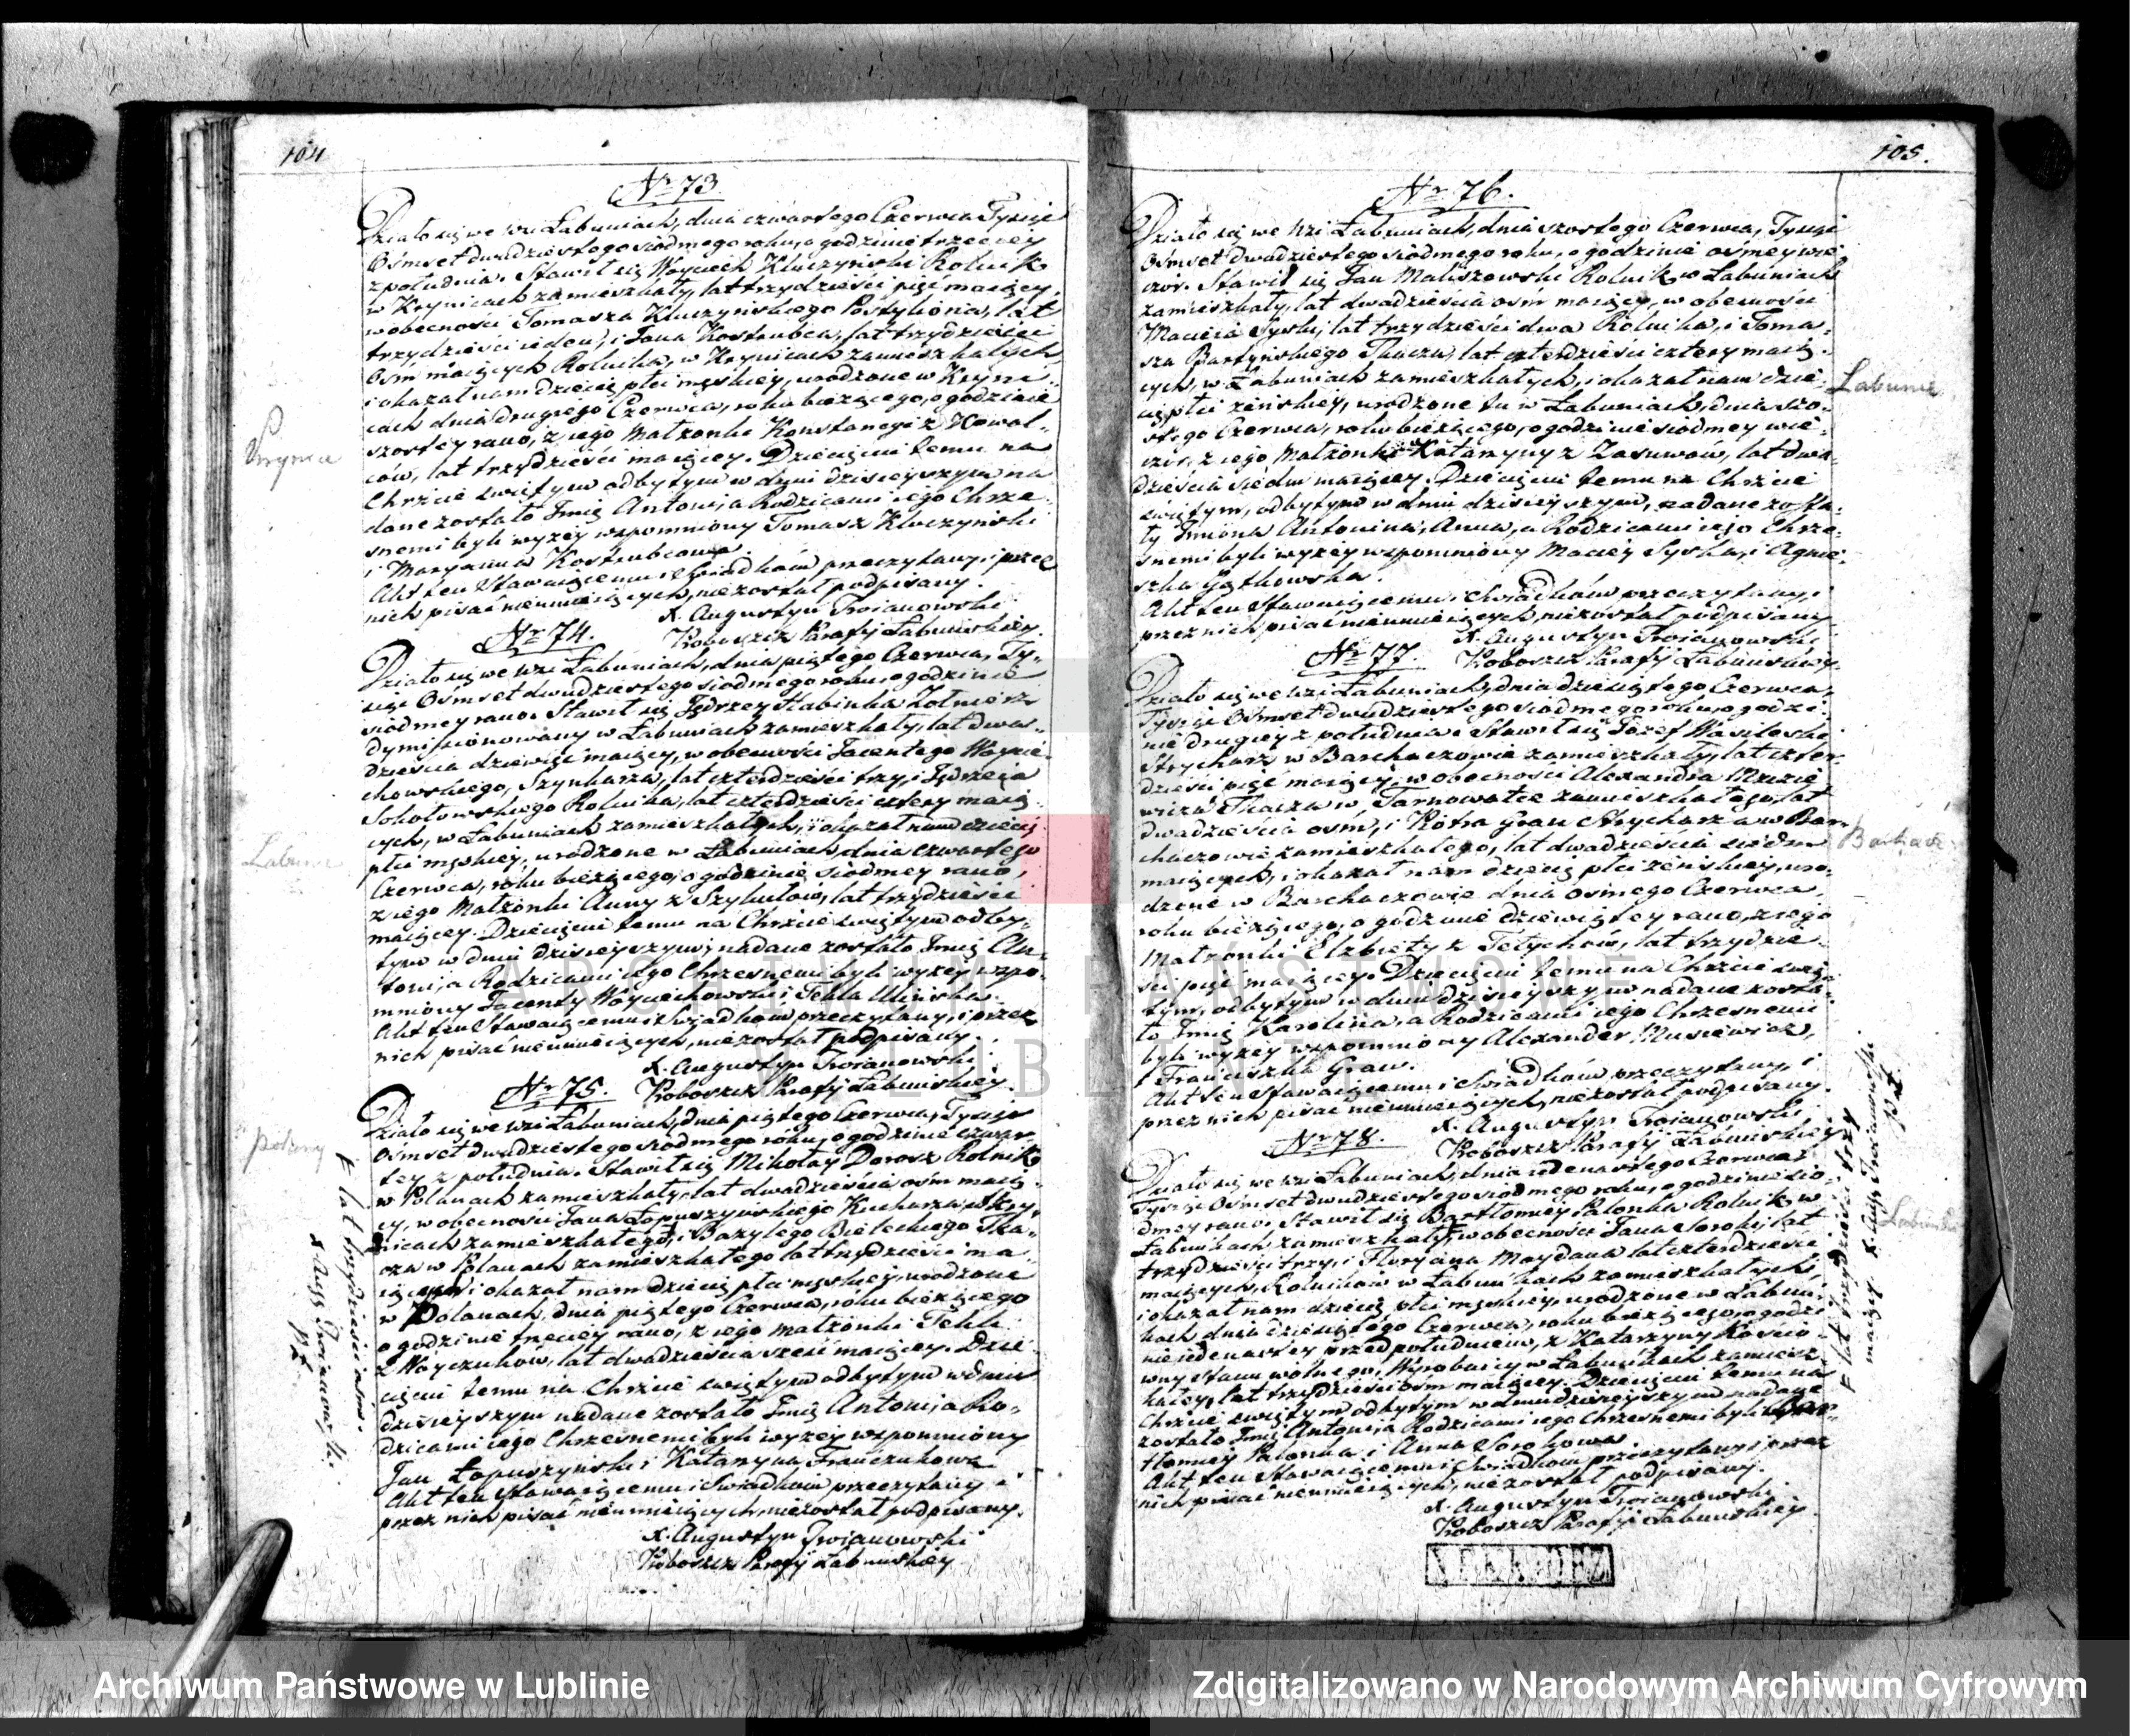 104
Nr 73
Działo się we Wsi Łabuniach, dnia czwartego Czerwca Tysiąc
Ośmset dwudziestego siódmego roku, o godzinie trzeciey
z południa. Stawił się Woyciech Kluczyński Rolnik
w Krynicach zamieszkały, lat trzydzieści pięć maiący,
w obecności Tomasza Kluczyńskiego Postyliona, lat
trzydzieści ieden, i Jana Kostrubca, lat trzydzieści
ośm maiących Rolnika, w Krynicach zamieszkałych
i okazał nam dziecię płci męskiey, urodzone w Kryni-
cach dnia drugiego Czerwca, roku bieżącego, o godzinie
szóstey rano, z iego Małżonki Konstancyi z Kowal-
ców, lat trzydzieści maiącey. Dziecięciu temu na
Chrzcie świętym odbytym w dniu dzisieyszym na
dane zostało Imię Antoni, a Rodzicami iego Chrze-
snemi byli wyżey wspomniony Tomasz Kluczyński
i Maryanna Kostrubcowa
Akt ten Stawaiącemu i Świadkom przeczytany, i przez
nich pisać nieumieiących, niezostał podpisany.
X. Augustyn Troianowski
Proboszcz Parafij Łabuńskiey.
Nr 74.
Działo się we Wsi Łabuniach, dnia piątego Czerwca, Ty-
siąc Ośmset dwudziestego siódmego roku, o godzinie
siódmey rano. Stawił się Jędrzey Babinka Żołnierz
dymissionowany w Łabuniach zamieszkały, lat dwa-
dzieścia dziewięć maiący, w obecności Jacentego Woycie-
chowskiego, Szynkarza, lat czterdzieści trzy, i Jędrzeia
Sokołowskiego Rolnika, lat czterdzieści cztery maią-
cych, w Łabuniach zamieszkałych, i okazał nam dziecię
płci męskiey, urodzone w Łabuniach, dnia czwartego
Czerwca, roku bieżącego, o godzinie siódmey rano,
z iego Małżonki Anny z Szykułów, lat trzydzieści
maiącey. Dziecięciu temu na Chrzcie świętym odby-
tym w dniu dzisieyszym, nadane zostało Imię An-
toni, a Rodzicami iego Chrzesnemi byli wyżey wspo-
mniony Jacenty Woyciechowski i Tekla
Akt ten Stawaiącemu i Świadkom przeczytany, i przez
nich pisać nieumieiących, niezostał podpisany.
X. Augustyn Troianowski
Proboszcz Parafij Łabuńskiey.
Nr 75.
Działo się we Wsi Łabuniach, dnia piątego Czerwca, Tysiąc
Ośmset dwudziestego siódmego roku, o godzinie czwar-
tey z południa. Stawił się Mikołay Dorosz Rolnik
w Polanach zamieszkały, lat dwadzieścia ośm maią-
cy, w obecności Jana Łopuszyńskiego Kucharza, w Kry-
nicach zamieszkałego, i Bazylego Bieleckiego Tka-
cza w Polanach zamieszkałego lat trzydzieści ma
iących i okazał nam dziecię płci męskiey, urodzone
w Polanach, dnia piątego Czerwca, roku bieżącego
o godzinie trzeciey rano, z iego Małżonki Tekli
z Woyczuków, lat dwadzieścia sześć maiącey. Dzie
cięciu temu na Chrzcie świętym odbytym w dniu
dzisieyszym nadane zostało Imię Antoni, a Ro-
dzicami iego Chrzesnemi byli wyżey wspomniony
Jan Łopuszyński i Katarzyna Franczukowa
Akt ten Stawaiącemu i Świadkom przeczytany i
przez nich pisać nieumieiących, niezostał podpisany.
X. Augustyn Troianowski
Proboszcz Parafij Łabuńskiey
Krynice
Łabunie
Polany
lat trzydzieści ośm.
X Aug. Troianowski
105.
Nr 76.
Działo się we Wsi Łabuniach, dnia szóstego Czerwca, Tysiąc
Ośmset Dwudziestego siódmego roku, o godzinie ósmey wie-
czór. Stawił się Jan Maliszewski Rolnik w Łabuniach
zamieszkały, lat dwadzieścia ośm maiący, w obecności
Macieia Syski, lat trzydzieści dwa Rolnika, i Toma-
sza Bartyńskiego Tkacza, lat czterdzieści cztery maią-
cych, w Łabuniach zamieszkałych, i okazał nam dzie-
cię płci żeńskiey, urodzone tu w Łabuniach, dnia szó-
stego Czerwca, roku bieżącego, o godzinie siódmey wie-
czór, z iego Małżonki Katarzyny z Zasuwów, lat dwa-
dzieścia siedm maiącey. Dziecięciu temu na Chrzcie
świętym, odbytym w dniu dzisieyszym, nadane zosta-
ły Imiona Antonina, Anna, a Rodzicami iego Chrze-
snemi byli wyżey wspomniony Maciey Syska, i Agnie-
szka
Akt ten Stawaiącemu i Świadkom przeczytany, i
przez nich pisać nieumieiących, niezostał podpisany
X. Augustyn Troianowski
Proboszcz Parafij Łabuńskiey.
Nr 77.
Działo się we Wsi Łabuniach, dnia dziesiątego Czerwca,
Tysiąc Ośmset dwudziestego siódmego roku, o godzi-
nie drugiey z południa. Stawił się Józef Wasilewski
Strycharz w Barchaczowie zamieszkały, lat czter-
dzieści pięć maiący, w obecności Alexandra
Tkacza w Tarnowatce zamieszkałego, lat
dwadzieścia ośm, i Piotra Graw Strycharza w Bar-
chaczowie zamieszkałego, lat dwadzieścia siedm
maiących, i okazał nam dziecię płci żeńskiey, uro-
dzone w Barchaczowie dnia ósmego Czerwca,
roku bieżącego, o godzinie dziewiątey rano, z iego
Małżonki Elżbiety z Tetychów, lat trzydzie-
ści pięć maiącey. Dziecięciu temu na Chrzcie świę-
tym, odbytym w dniu dzisieyszym nadane zosta-
ło Imię Karolina, a Rodzicami iego Chrzesnemi
byli wyżey wspomniony Alexander Musiewicz,
i Franciszka Graw.
Akt ten Stawaiącemu i Świadkom przeczytany, i
przez nich pisać nieumieiących, niezostał podpisany.
X. Augustyn Troianowski
Proboszcz Parafij Łabuńskiey
Nr 78.
Działo się we Wsi Łabuniach, dnia iedenastego Czerwca
Tysiąc Ośmset dwudziestego siódmego roku, o godzinie sió-
dmey rano. Stawił się Bartłomiey Palonka Rolnik w
Łabuńkach zamieszkały, w obecności Jana Soroki, lat
trzydzieści trzy, i Floryana Maydana lat czterdzieści
maiących, Rolników w Łabuńkach zamieszkałych,
i okazał nam dziecię płci męskiey, urodzone w Łabuń-
kach dnia dziesiątego Czerwca, roku bieżącego, o godzi-
nie iedenastey przed południem, z Katarzyny Kościo-
wny stanu wolnego, Wyrobnicy w Łabuńkach zamiesz-
kałey, lat trzydzieści ośm maiącey. Dziecięciu temu na
Chrzcie świętym odbytym w dniu dzisieyszym nadane
zostało Imię Antoni, a Rodzicami iego Chrzesnemi byli Bar-
tłomiey Palonka i Anna Sorokowa
Akt ten Stawaiącemu i Świadkom przeczytany, i przez
nich pisać nieumieiących, niezostał podpisany.
X. Augustyn Troianowski
Proboszcz Parafij Łabuńskiey
Łabunie
lat trzydzieści trzy
maiący. X. Aug. Troianowski
ARCHIWUM PAŃSTWOWE
W LUBLINIE
Archiwum Państwowe w Lublinie
Zdigitalizowano w Narodowym Archiwum Cyfrowym